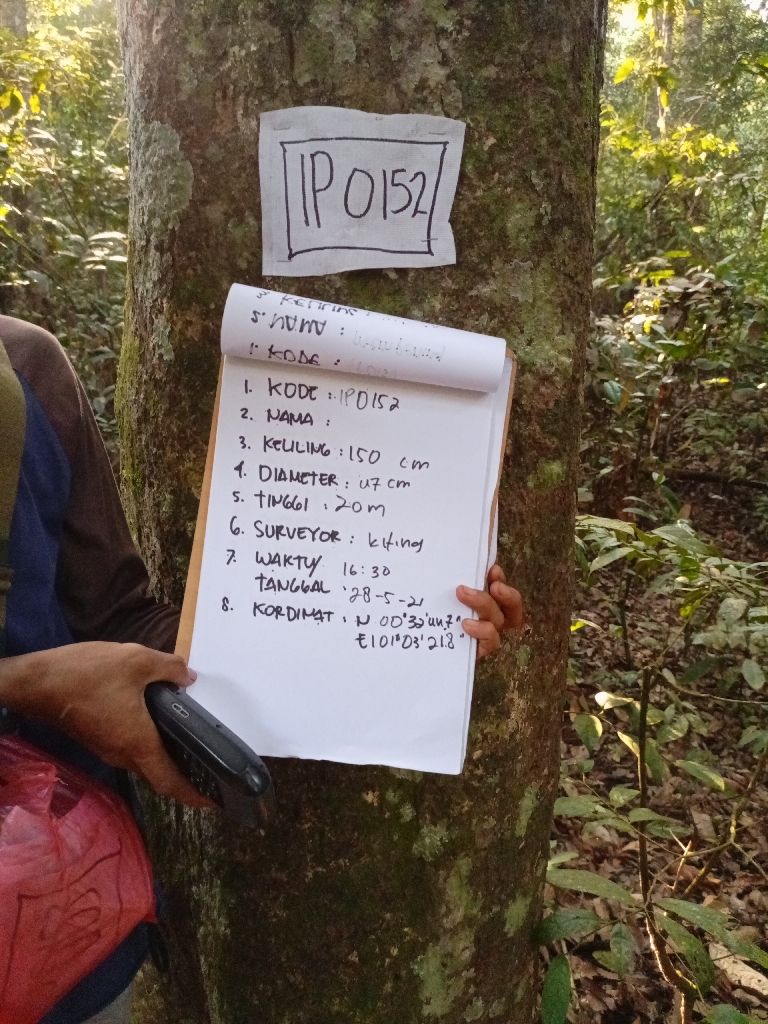 IP0152
3. KELILING :
2. NAMA :
1. KODE :
1. KODE : IP0152
2. NAMA :
3. KELILING : 150 cm
4. DIAMETER : 47 cm
5. TINGGI : 20 m
6. SURVEYOR :
7. WAKTU 16:30
TANGGAL : 28-5-21
8. KORDINAT : N 00°32'44.7"
E 101°03'21.8"